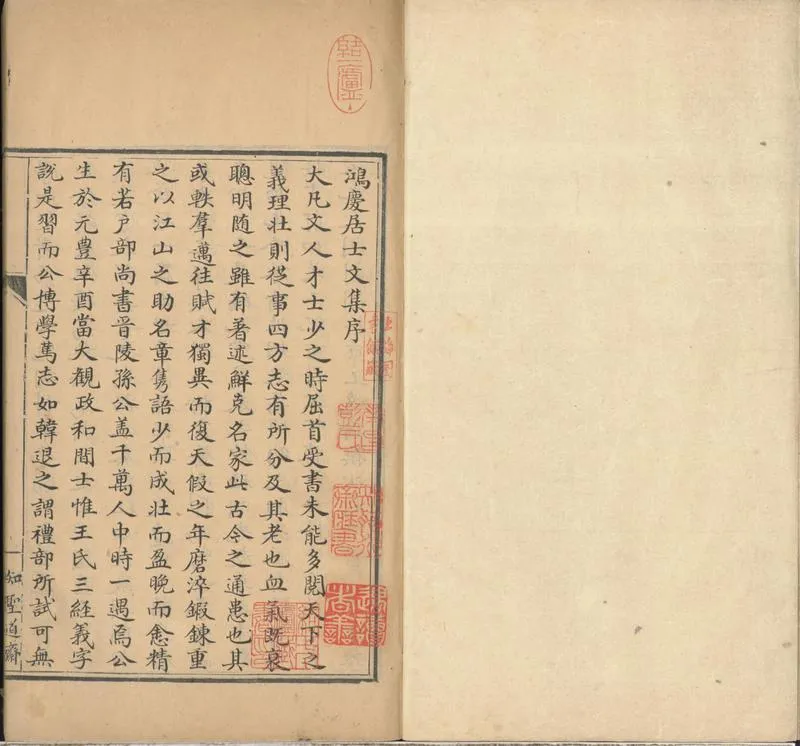 鴻慶居士文集序
大凡文人才士少之時屈首受書未能多閱天下之
義理壯則從事四方志有所分及其老也血氣既衰
聰明随之雖有著述鮮克名家此古今之通患也其
或軼羣邁往賦才獨異而復天假之年磨淬鍜鍊重
之以江山之助名章雋語少而成壯而盈晚而愈精
有若戶部尚書晉陵孫公盖千萬人中時一遇焉公
生於元豊辛酉當大觀政和間士惟王氏三經義字
說是習而公博學篤志如韓退之謂禮部所試可無
一
知聖道齋
結一廬